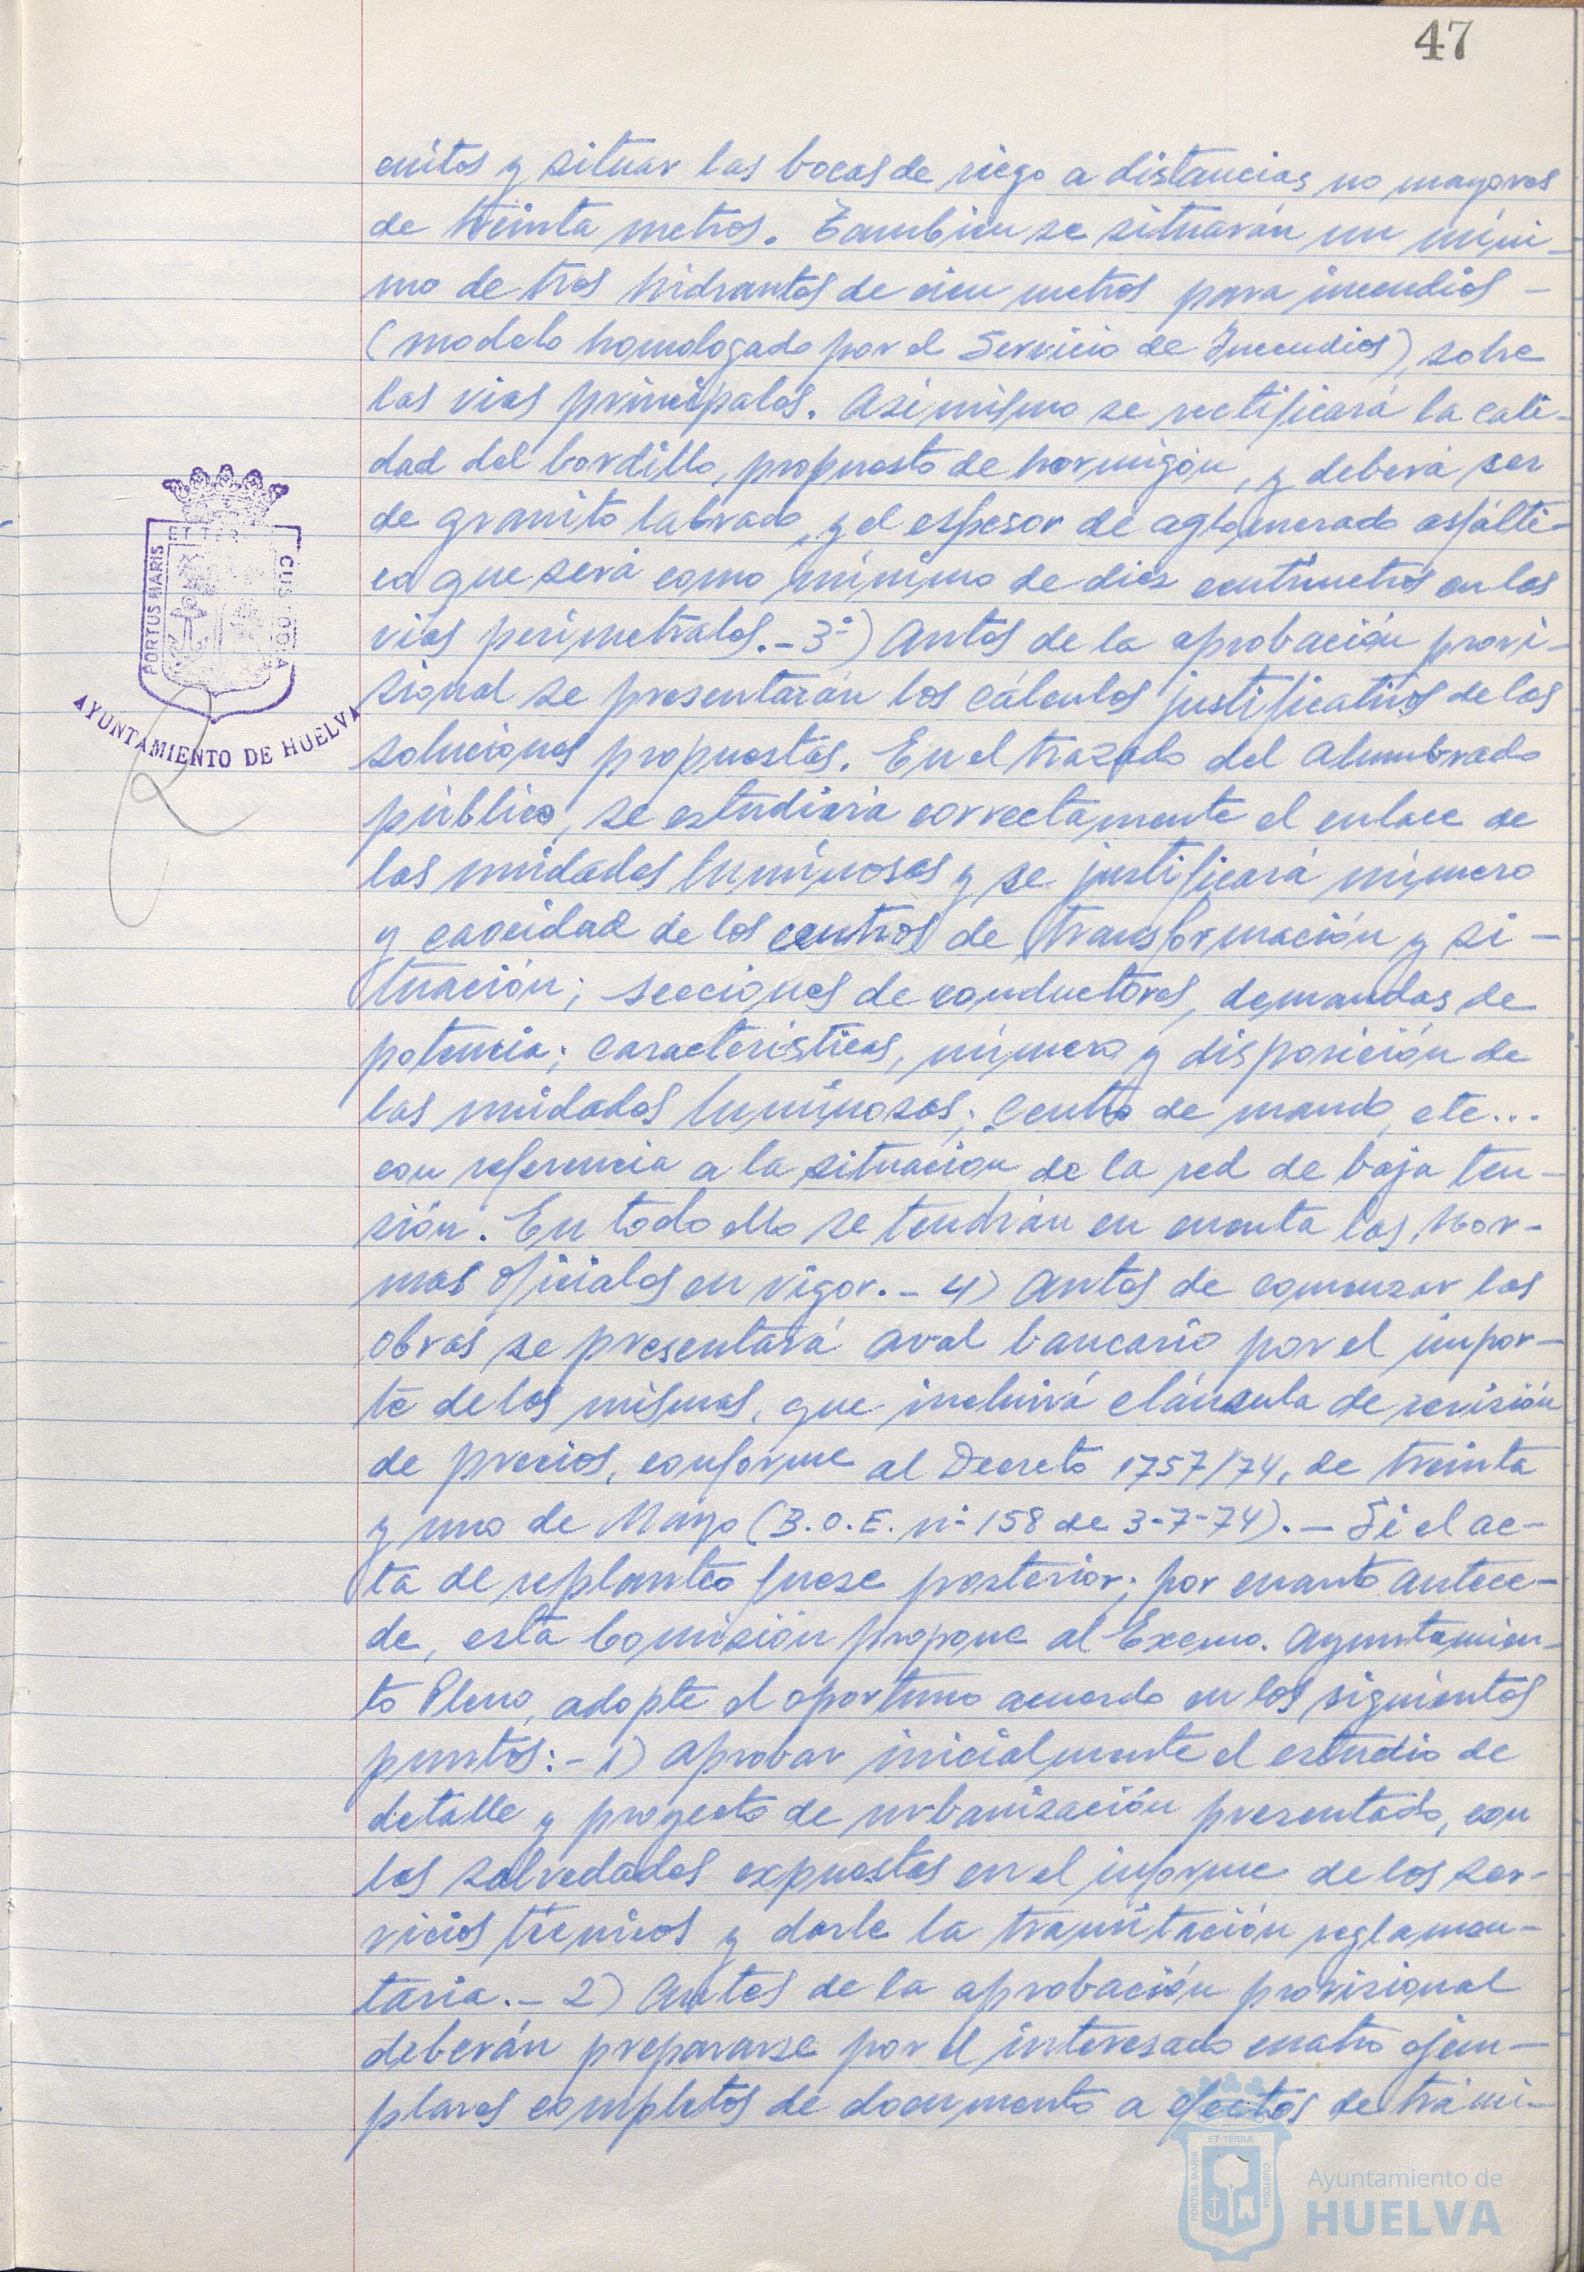 47
cuitos y situar las bocas de riego a distancias no mayores
de treinta metros. Tambien se situarán un míni-
mo de tres hidrantes de cien metros para incendios -
(modelo homologado por el Servicio de Incendios), sobre
las vias principales. Asi mismo se rectificará la cali-
dad del bordillo, propuesto de hormigón, y deberá ser
de granito labrado, y el espesor de aglomerado asfálti-
co que será como mínimo de diez centimetros en las
vias perimetrales.- 3º) Antes de la aprobación provi-
sional se presentarán los cálculos justificativos de las
soluciones propuestas. En el trazado del alumbrado
público, se estudiará correctamente el enlace de
las unidades luminosas y se justificará número
y cavidad de los centros de transformación y si-
tuación; secciones de conductores, demandas de
potencia; características, número y disposición de
las unidades luminosas; Centro de mando, etc...
con referencia a la situación de la red de baja ten-
sión. En todo ello se tendrán en cuenta las Nor-
mas oficiales en vigor.- 4) Antes de comenzar las
obras se presentará aval bancario por el impor-
te de las mismas, que incluirá cláusula de revisión
de precios, conforme al Decreto 1757/74, de treinta
y uno de Mayo (B.O.E. nº 158 de 3-7-74).- Si el ac-
ta de replanteo fuese posterior; por cuanto antece-
de, esta Comisión propone al Excmo. Ayuntamien-
to Pleno, adopte el oportuno acuerdo en los siguientes
puntos:- 1) Aprobar inicialmente el estudio de
detalle y proyecto de urbanización presentado, con
las salvedades expuestas en el informe de los Ser-
vicios técnicos y darle la tramitación reglamen-
taria.- 2) Antes de la aprobación provisional
deberán prepararse por el interesado cuatro ejem-
plares completos de documento a efectos de trámi-
PORTUS MARIS
ET TERRÆ
CUSTODIA
AYUNTAMIENTO DE HUELVA
PORTUS MARIS
ET TERRÆ
CUSTODIA
Ayuntamiento de
HUELVA